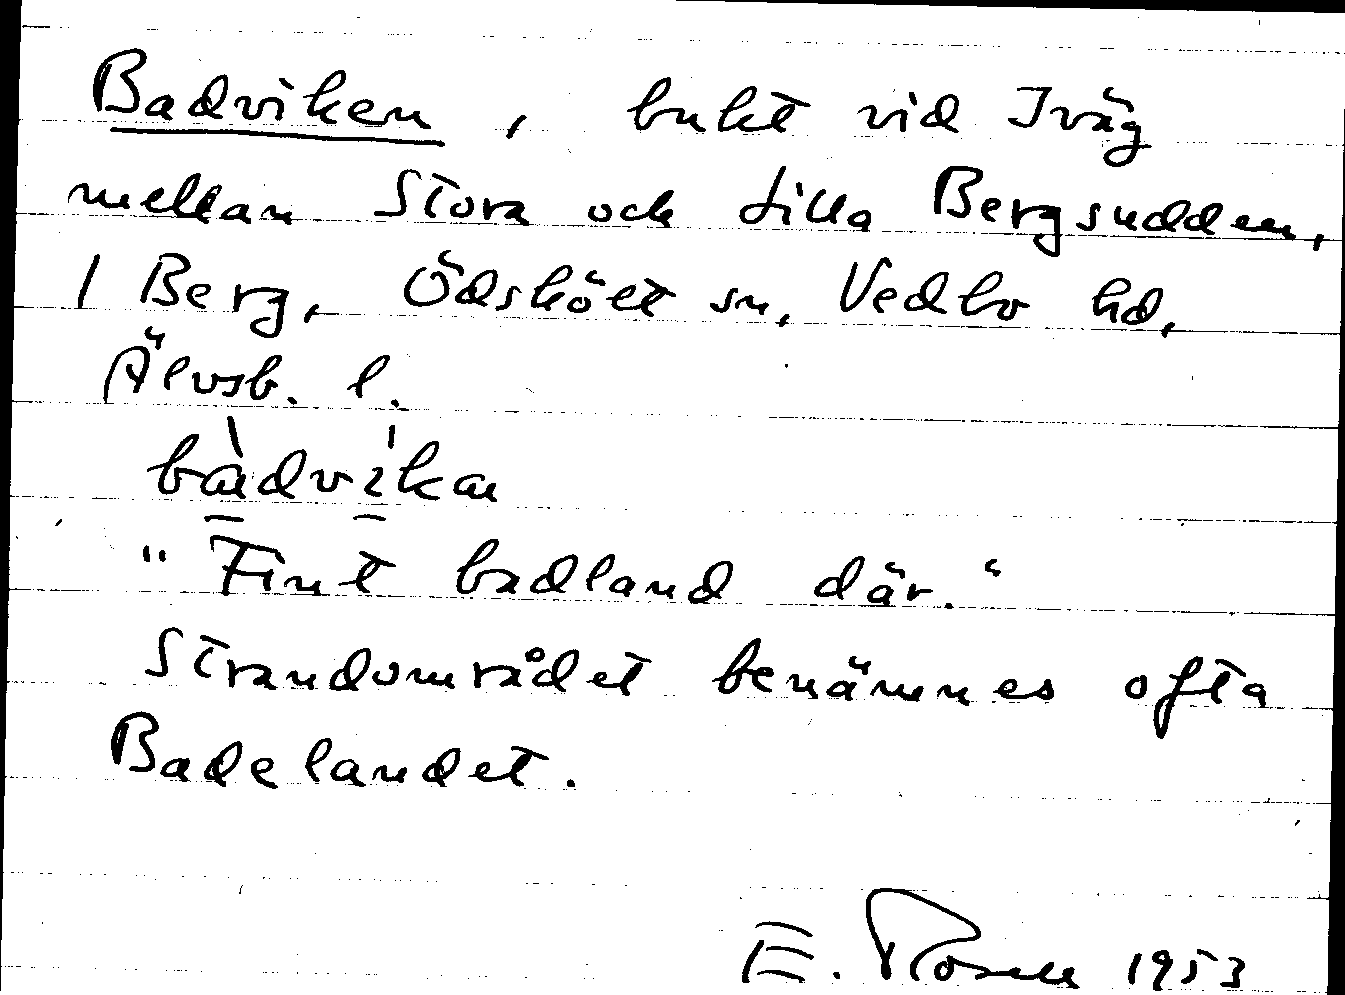 Badviken, bukt vid Iväg
mellan Stora och Lilla Bergsudden,
1 Berg, Ödskölt sn, Vedbo hd,
Älvsb. l.
bàdvíkan
"Fint badland där."
Strandområdet benämnes ofta
Badelandet.
E. Rosell 1953